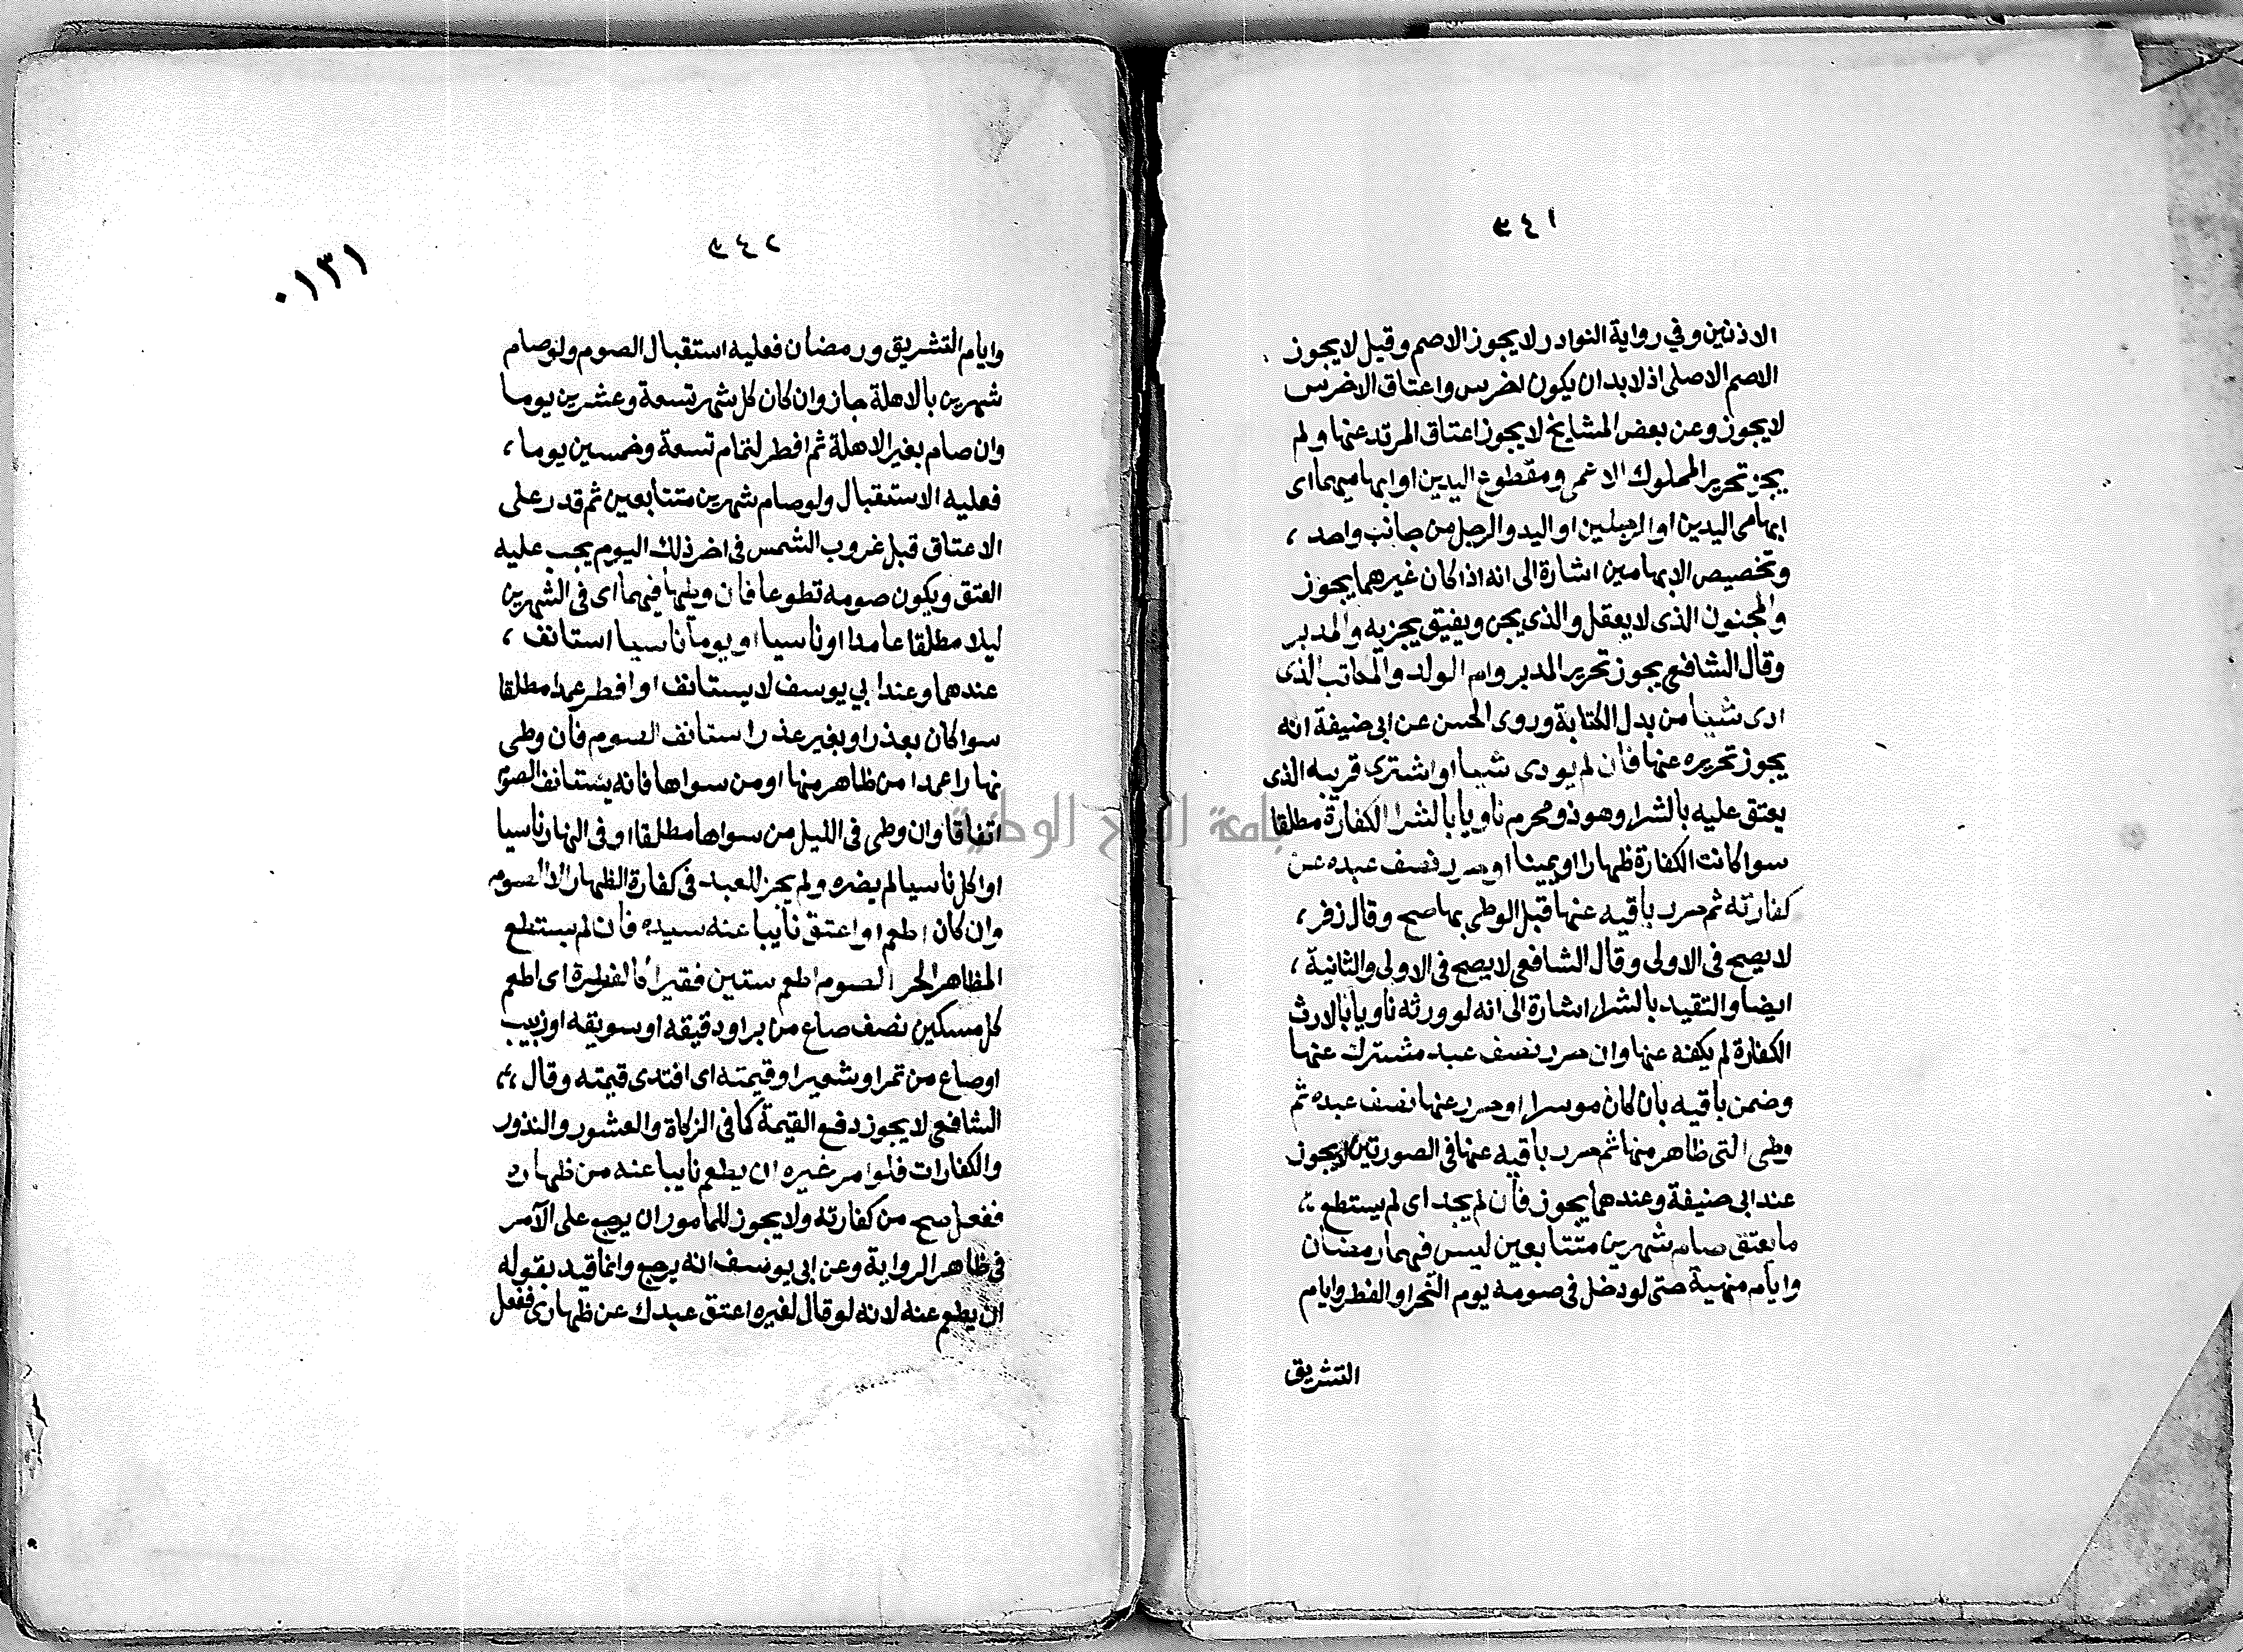 ٥٤١
الاذنين وفي رواية النوادر لا يجوز الاصم وقيل لا يجوز
الاصم الاصلى اذ لا بد ان يكون اخرس واعتاق الاخرس
لا يجوز وعن بعض المشايخ لا يجوز اعتاق المرتد عنها ولم
يجز تحرير المملوك الاعمى ومقطوع اليدين او ابهاميهما اى
ابهامى اليدين او الرجلين او اليد والرجل من جانب واحد ،
وتخصيص الابهامين اشارة الى انه اذا كان غيرهما يجوز
والمجنون الذى لا يعقل والذى يجن ويفيق يجزيه والمدبر
وقال الشافعى يجوز تحرير المدبر وام الولد والمكاتب الذى
ادى شيا من بدل الكتابة وروى الحسن عن ابى حنيفة انه
يجوز تحريره عنها فان لم يودى شيا او اشترى قريبه الذى
يعتق عليه بالشرا وهو ذو محرم ناويا بالشرا الكفارة مطلقا
سوا كانت الكفارة ظهارا او يمينا او حرر نصف عبده عن
كفارته ثم حرر باقيه عنها قبل الوطى بها صح وقال زفر ،
لا يصح فى الاولى وقال الشافعى لا يصح فى الاولى والثانية ،
ايضا والتقيد بالشرا اشارة الى انه لو ورثه ناويا بالارث
الكفارة لم يكفه عنها وان حرر نصف عبد مشترك عنها
وضمن باقيه بان كان موسرا او حرر عنها نصف عبده ثم
وطى التى ظاهر منها ثم حرر باقيه عنها فى الصورتين لا يجوز
عند ابى حنيفة وعندهما يجوز فان لم يجد اى لم يستطع ،
ما يعتق صام شهرين متتابعين ليس فيهما رمضان
وايام منهية حتى لو دخل فى صومه يوم النحر او الفطر وايام
التشريق
٥٤٢
٠١٣١
وايام التشريق ورمضان فعليه استقبال الصوم ولو صام
شهرين بالاهلة جاز وان كان كل شهر تسعة وعشرين يوما
وان صام بغير الاهلة ثم افطر لتمام تسعة وخمسين يوما ،
فعليه الاستقبال ولو صام شهرين متتابعين ثم قدر على
الاعتاق قبل غروب الشمس فى اخر ذلك اليوم يجب عليه
العتق ويكون صومه تطوعا فان وطيها فيهما اى فى الشهرين
ليلا مطلقا عامدا او ناسيا او يوما ناسيا استانف ،
عندهما وعند ابي يوسف لا يستانف او افطر عمدا مطلقا
سوا كان بعذر او بغير عذر استانف الصوم فان وطى
نهارا عمدا من ظاهر منها او من سواها فانه يستانف الصو
اتفاقا وان وطى فى الليل من سواها مطلقا او فى النهار ناسيا
او اكل ناسيا لم يضره ولم يجز للعبد فى كفارة الظهار الا الصوم
وان كان اطعم او اعتق نايبا عنه سيده فان لم يستطع
المظاهر الحر الصوم اطعم ستين فقيرا كالفطرة اى اطعم
كل مسكين نصف صاع من بر او دقيقه او سويقه او زبيب
او صاع من تمر او شعير او قيمته اى افتدى قيمته وقال ،،
الشافعى لا يجوز دفع القيمة كما فى الزكاة والعشور والنذور
والكفارات فلو امر غيره ان يطعم نايبا عنه من ظهاره
ففعل صح من كفارته ولا يجوز للمامور ان يرجع على الآمر
فى ظاهر الرواية وعن ابى يوسف انه يرجع وانما قيد بقوله
ان يطعم عنه لانه لو قال لغيره اعتق عبدك عن ظهارى ففعل